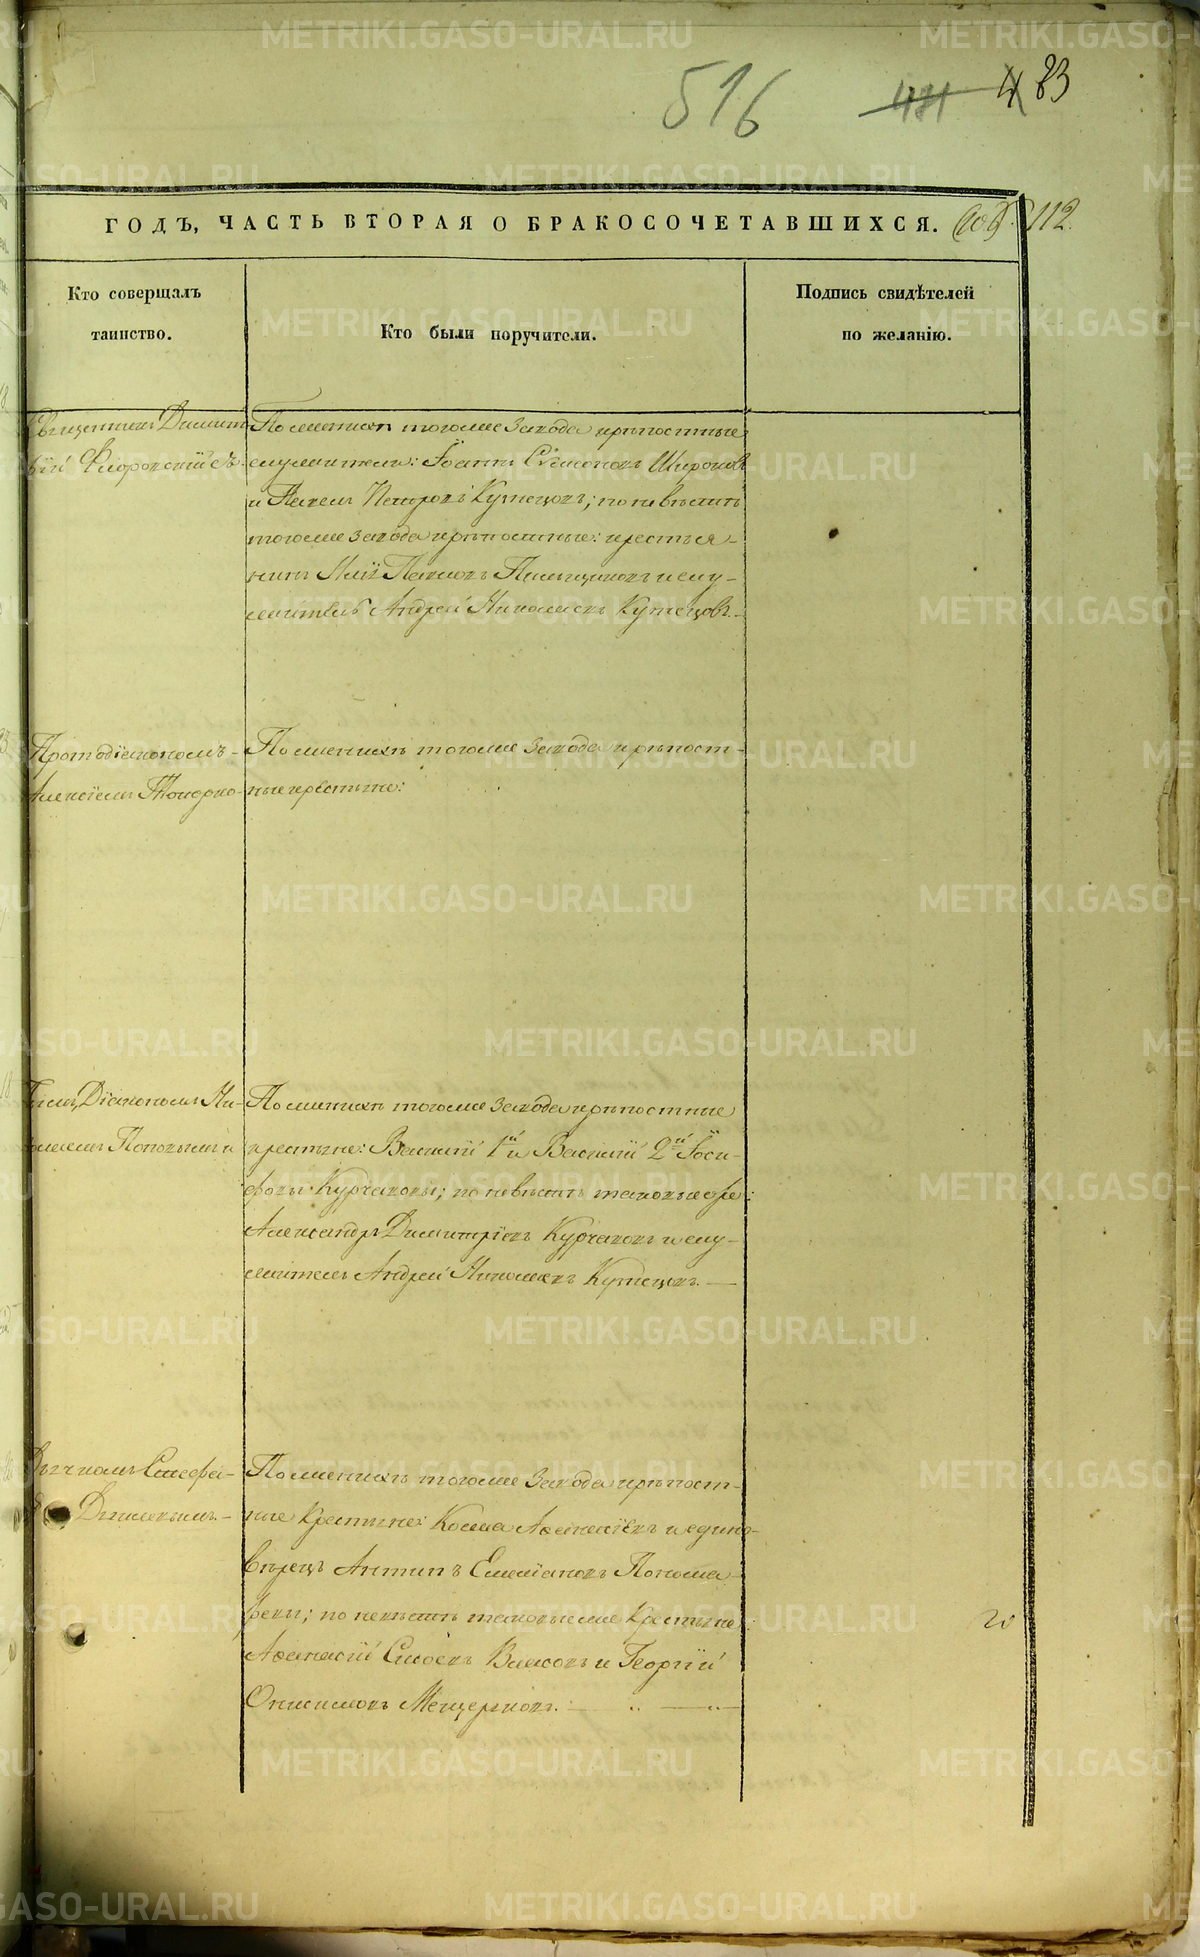 516 483
ГОДЪ, ЧАСТЬ ВТОРАЯ О БРАКОСОЧЕТАВШИХСЯ. 112.
Кто совершалъ
таинство.
Кто были поручители.
Подпись свидѣтелей
по желанію.
Священникъ Димит
рій Флоровскій съ
По женихѣ тогоже завода крѣпостные
служители: Іоаннъ Симоновъ Широковъ
и Павелъ Петровъ Кузнецовъ; по невѣстѣ
тогоже завода крѣпостные: крестья-
нинъ Илій Павловъ и слу-
житель Андрей Николаевъ Кузнецовъ.
Протодіакономъ
Алексіемъ
По женихѣ тогоже завода крѣпост-
ные крестьяне:
Діакономъ Ни-
колаемъ Поповымъ и
По женихѣ тогоже завода крѣпостные
крестьяне: Василій 1й и Василій 2й Іоси-
фовы Курчавовы; по невѣстѣ таковые же:
Александръ Димитріевъ Курчавовъ и слу-
житель Андрей Николаевъ Кузнецовъ.
Дьячкомъ Стефа-
По женихѣ тогоже завода крѣпост-
ные крестьяне: Косма Аѳанасіевъ и едино-
вѣрецъ Антипъ Емеліановъ Понома-
ревы; по невѣстѣ таковые же крестьяне
Аѳанасій Власовъ и Георгій
Онисимовъ Мещеряковъ.
METRIKI.GASO-URAL.RU